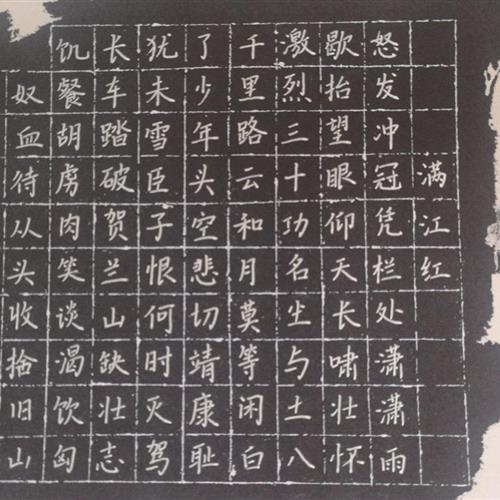 满江红
怒发冲冠凭栏处潇潇雨
歇抬望眼仰天长啸壮怀
激烈三十功名尘与土八
千里路云和月莫等闲白
了少年头空悲切靖康耻
犹未雪臣子恨何时灭驾
长车踏破贺兰山缺壮志
饥餐胡虏肉笑谈渴饮匈
奴血待从头收拾旧山